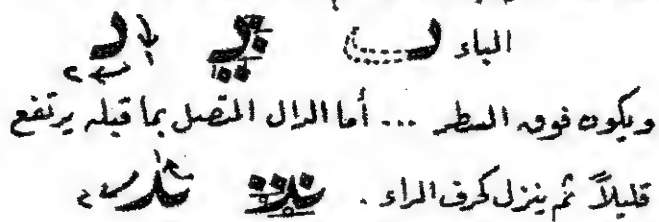 الباء
ويكون فوق السطر ... أما الدال المتصل بما قبله يرتفع
قليلاً ثم ينزل كحرف الراء .